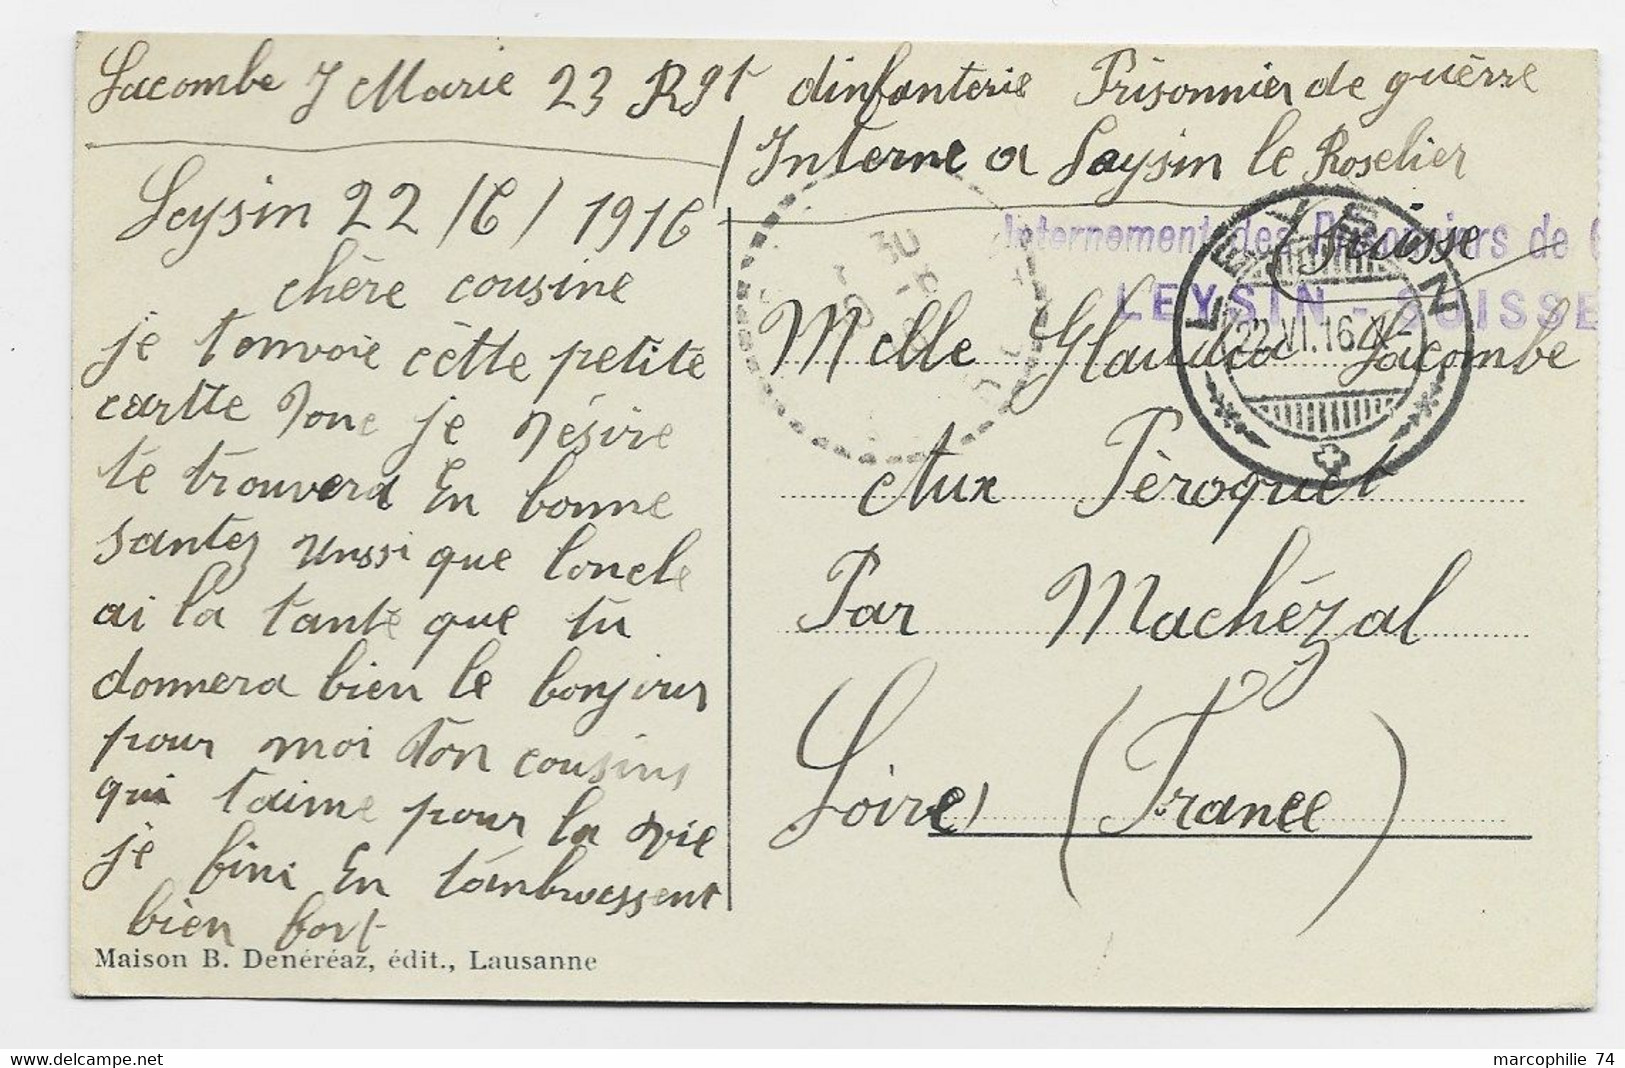 Lacombe J Marie 23 Rgt dinfanterie Prisonnier de guèrre
Interne a Laysin le Roselier
Suisse
Leysin 22/6/1916
chère cousine
je tonvoie cètte petite
cartte Jone je désire
te trouvera En bonne
santez aussi que loncle
ai la tante que tu
donnera bien le bonjour
pour moi Ton cousins
qui taime pour la vie
je fini En tombrassent
bien fort
Maison B. Denéréaz, édit., Lausanne
Internement des Prisonniers de G
LEYSIN - SUISSE
LEYSIN
22.VI.16
Melle Glaudia Lacombe
Aux Pèroquet
Par Machézal
Loire) (France)
marcophilie 74